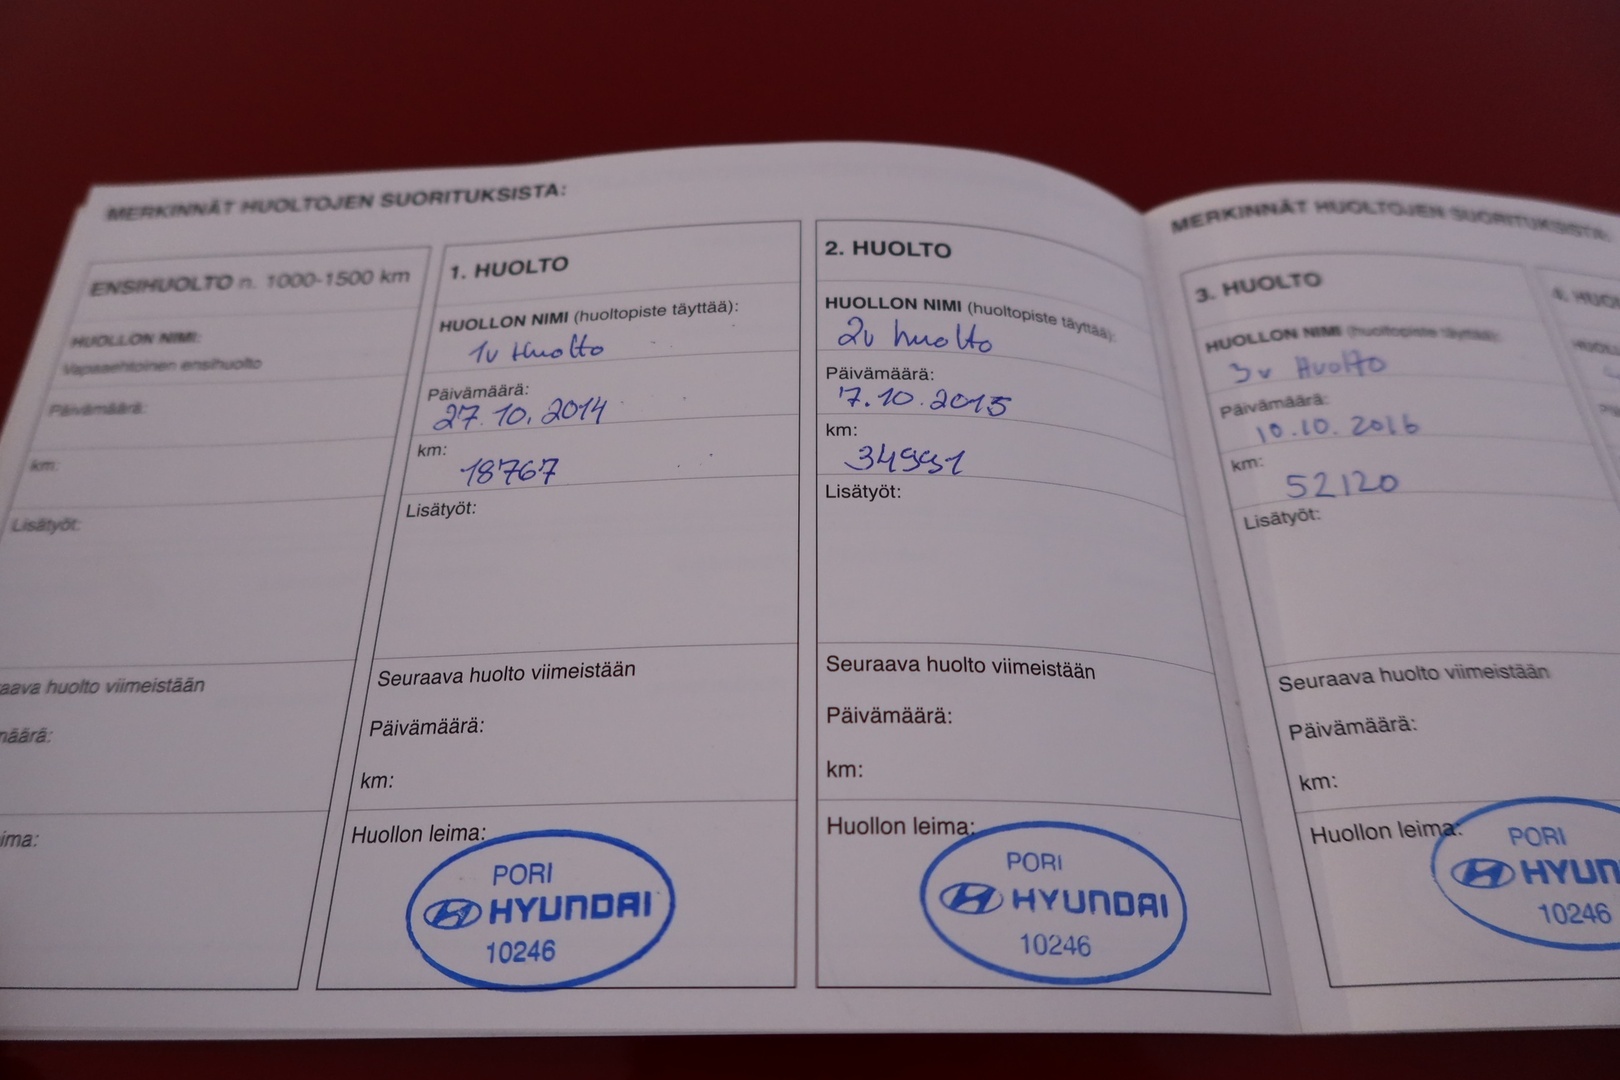 MERKINNÄT HUOLTOJEN SUORITUKSISTA:
ENSIHUOLTO n. 1000-1500 km
HUOLLON NIMI:
Vapaaehtoinen ensihuolto
Päivämäärä:
km:
Lisätyöt:
aava huolto viimeistään
määrä:
ima:
1. HUOLTO
HUOLLON NIMI (huoltopiste täyttää):
1v Huolto
Päivämäärä:
27.10.2014
km:
18767
Lisätyöt:
Seuraava huolto viimeistään
Päivämäärä:
km:
Huollon leima:
PORI
HYUNDAI
10246
2. HUOLTO
HUOLLON NIMI (huoltopiste täyttää):
2v huolto
Päivämäärä:
7.10.2015
km:
34991
Lisätyöt:
Seuraava huolto viimeistään
Päivämäärä:
km:
Huollon leima:
PORI
HYUNDAI
10246
MERKINNÄT HUOLTOJEN SUORITUKSISTA:
3. HUOLTO
HUOLLON NIMI (huoltopiste täyttää):
3v Huolto
Päivämäärä:
10.10.2016
km:
52120
Lisätyöt:
Seuraava huolto viimeistään
Päivämäärä:
km:
Huollon leima:
PORI
HYUN
10246
4. HUO